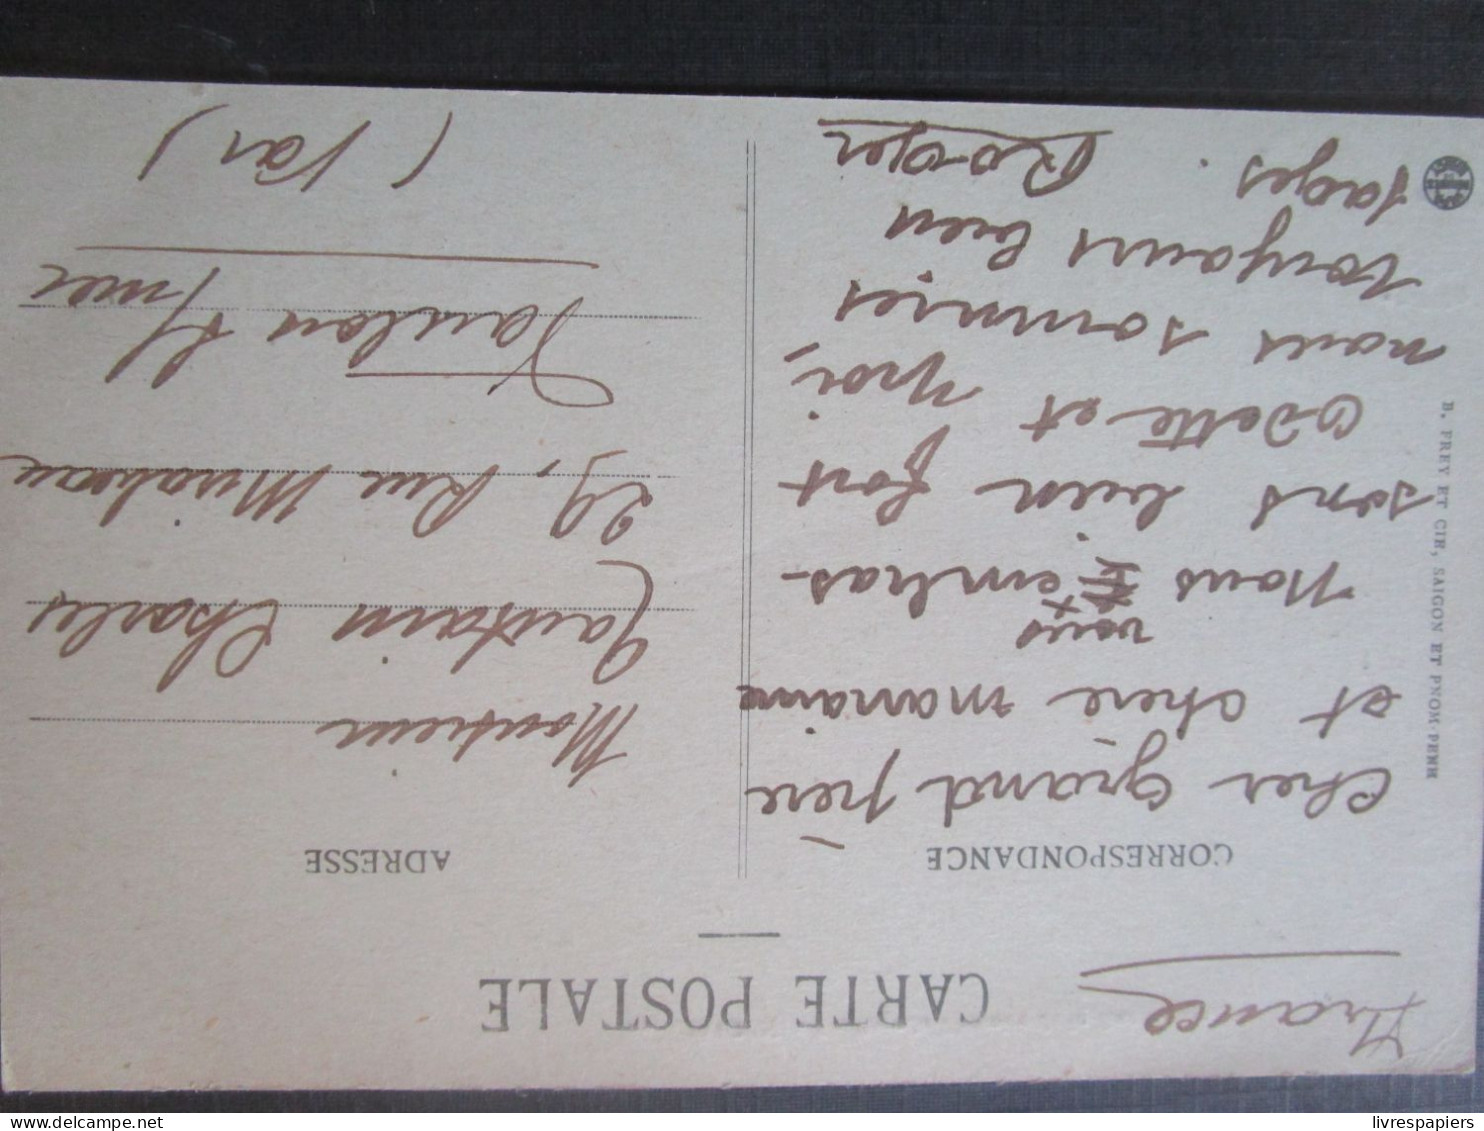 France
CARTE POSTALE
CORRESPONDANCE
Cher Grand père
et chère marraine
vous
Nous embras-
sons bien fort
Odette et Moi,
nous sommes
toujours bien
sages.
Roger
ADRESSE
Monsieur
Charles
29, Rue Mirabeau
Toulon s/ mer
(Var)
B. FREY ET CIE, SAIGON ET PNOM-PENH
delcampe.net
livrespapiers